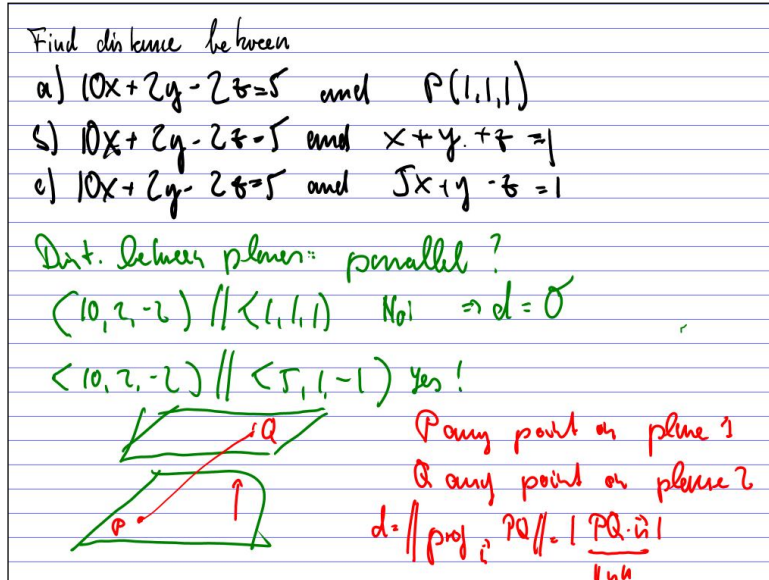 Find distance between
a) 10x + 2y - 2z = 5 and P(1,1,1)
b) 10x + 2y - 2z = 5 and x + y + z = 1
c) 10x + 2y - 2z = 5 and 5x + y - z = 1
Dist. between planes: parallel?
<10, 2, -2> // <1, 1, 1> No! => d = 0
<10, 2, -2> // <5, 1, -1> Yes!
Q
P any point on plane 1
Q any point on plane 2
P
d = || proj_n PQ || = |PQ · n| / ||n||